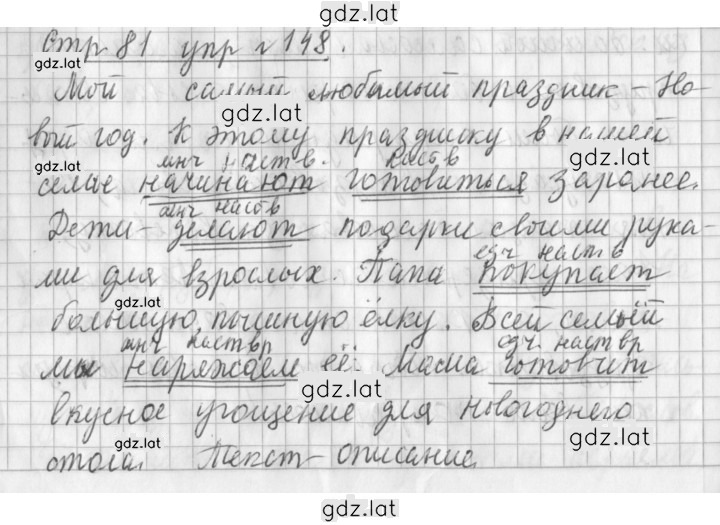 gdz.lat
Стр 81 упр. 148.
gdz.lat
Мой самый любимый праздник – Но-
gdz.lat
вый год. К этому празднику в нашей
gdz.lat
мнч наст в. наст в
семье начинают готовиться заранее.
мнч наст в
Дети – делают подарки своими рука-
gdz.lat
едч наст в
ми для взрослых. Папа покупает
gdz.lat
большую, пышную ёлку. Всей семьёй
мнч наст вр едч. наст вр
мы наряжаем её. Мама готовит
gdz.lat
вкусное угощение для новогоднего
gdz.lat gdz.lat
стола. Текст – описание.
gdz.lat